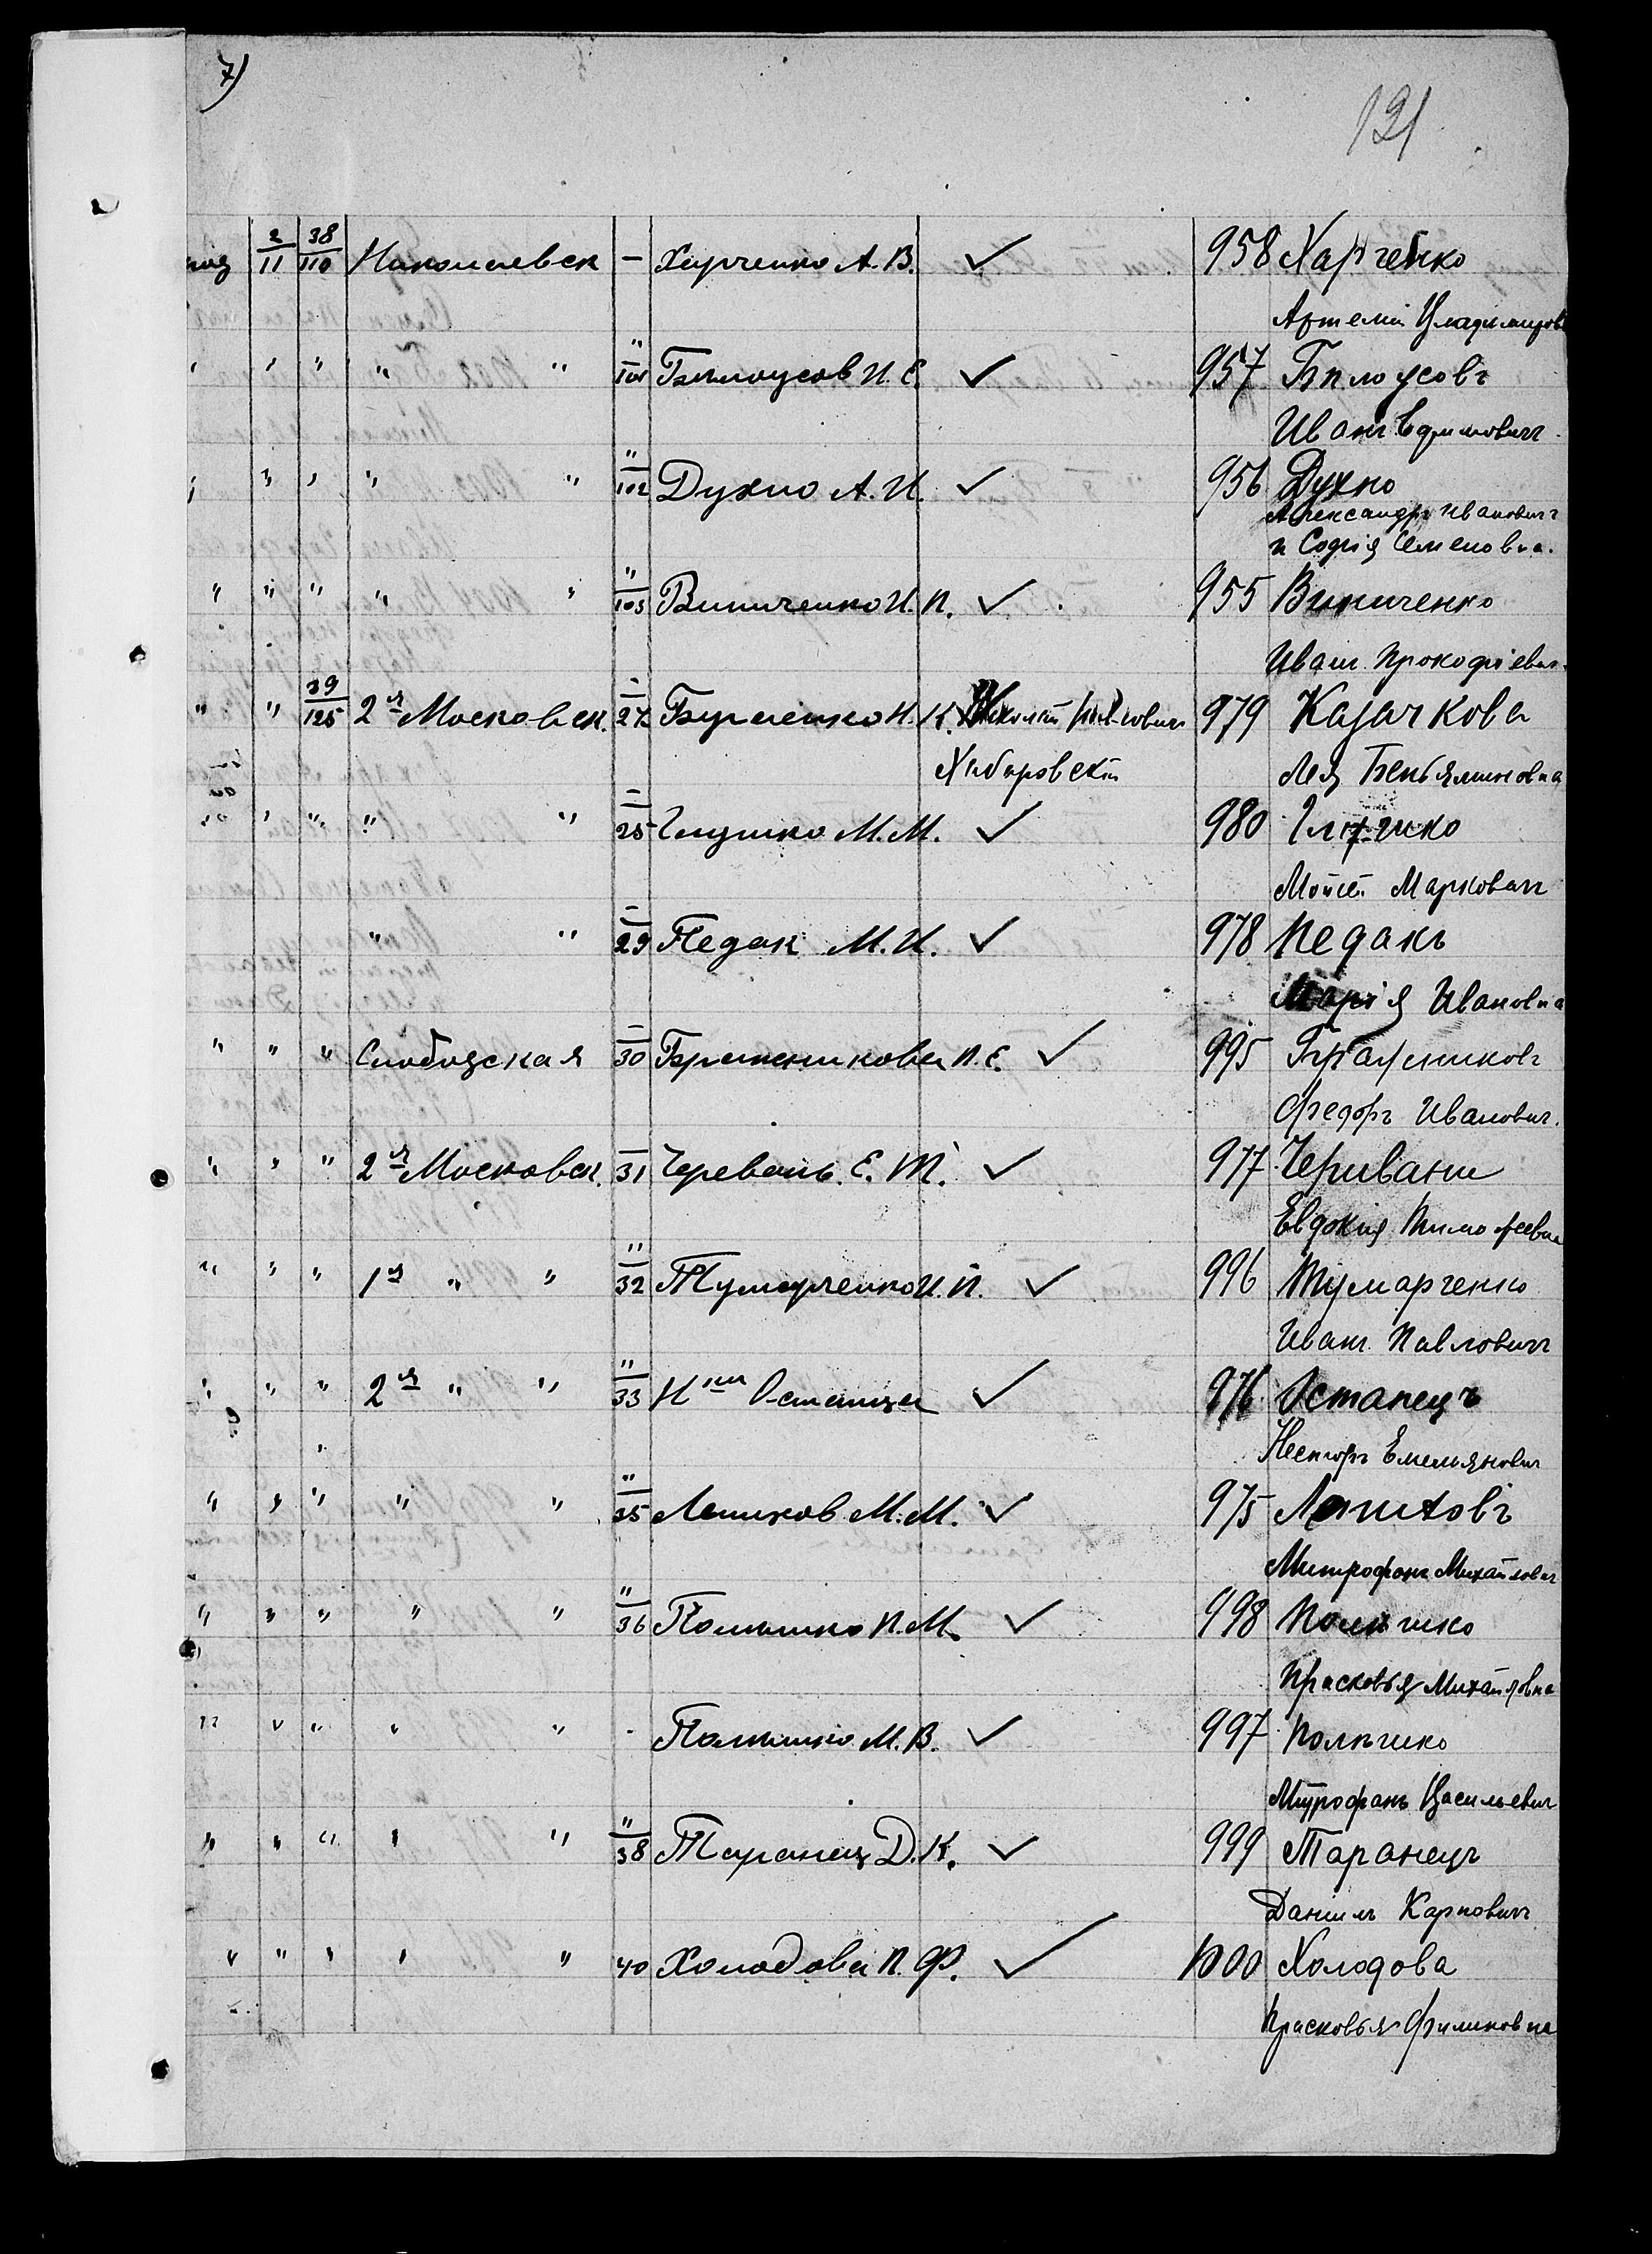 7)
121
2/11 38/110 Николаевск — Харченко А. В. ✓ 958 Харченко
Артемій Владимиров
" " " " " "/101 Бѣлоусов И. Е. ✓ 957 Бѣлоусовъ
Иванъ Ефимовичъ
" " " " " "/102 Духно А. И. ✓ 956 Духно
Александръ Ивановичъ
и Софія Семеновна.
" " " " " "/103 Виниченко И. П. ✓ 955 Виниченко
Иванъ Прокофіевич
" " 39/125 2я Московск. 27 Бурленко Н. К. Николай
Хабаровскъ
979 Казачкова
Лея Беньяминовна
" " " " 25 Глушко М. М. ✓ 980 Глушко
Мойсей Марковичъ
" " 29 Педак М. И. ✓ 978 Педакъ
Марія Ивановна
" " " Слободская 30 Бражникова П. Е. ✓ 995 Бражниковъ
Федоръ Иванович.
" " " 2я Московск. 31 Черевань Е. Т. ✓ 977 Черивани
Евдокия Тимофеевна
" " " 1я " " "/32 Тумарченко И. П. ✓ 996 Тумарченко
Иванъ Павловичъ
" " " 2я " " "/33 Нки Остапца ✓ 976 Остапецъ
Несторъ Емельянович
" " " " " "/35 Лапиков М. М. ✓ 975
Митрофанъ Михайлович
" " " " " "/36 Полышко П. М. ✓ 998
Прасковья Михайловна
" " " " " - Полышко М. В. ✓ 997
Митрофанъ Васильевич
" " " " " "/38 Таранец Д. К. ✓ 999 Таранецъ
Даніилъ Карповичъ
" " " " " 40 Холодова П. Ф. ✓ 1000 Холодова
Прасковья Филиповна